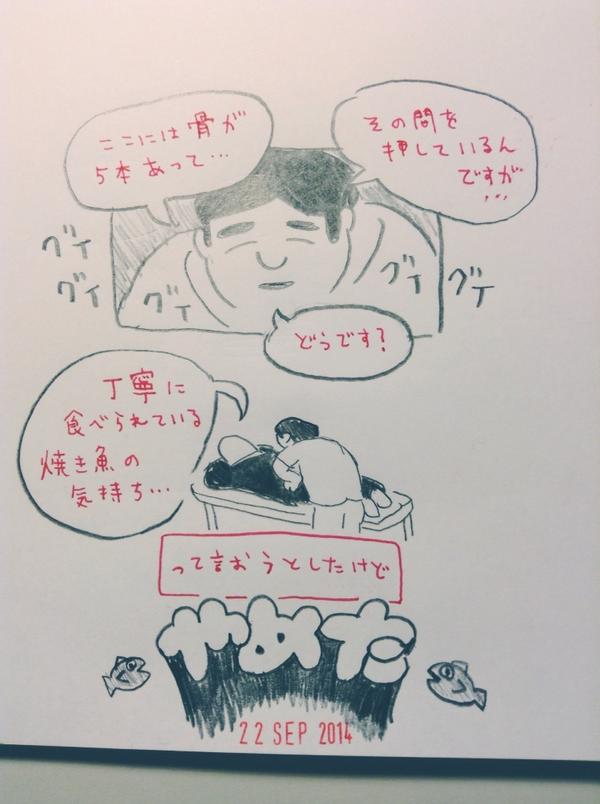 ここには骨が
5本あって…
その間を
押しているん
ですが…
グイ
グイ
グイ
グイ
グイ
どうです?
丁寧に
食べられている
焼き魚の
気持ち…
って言おうとしたけど
やめた
22 SEP 2014